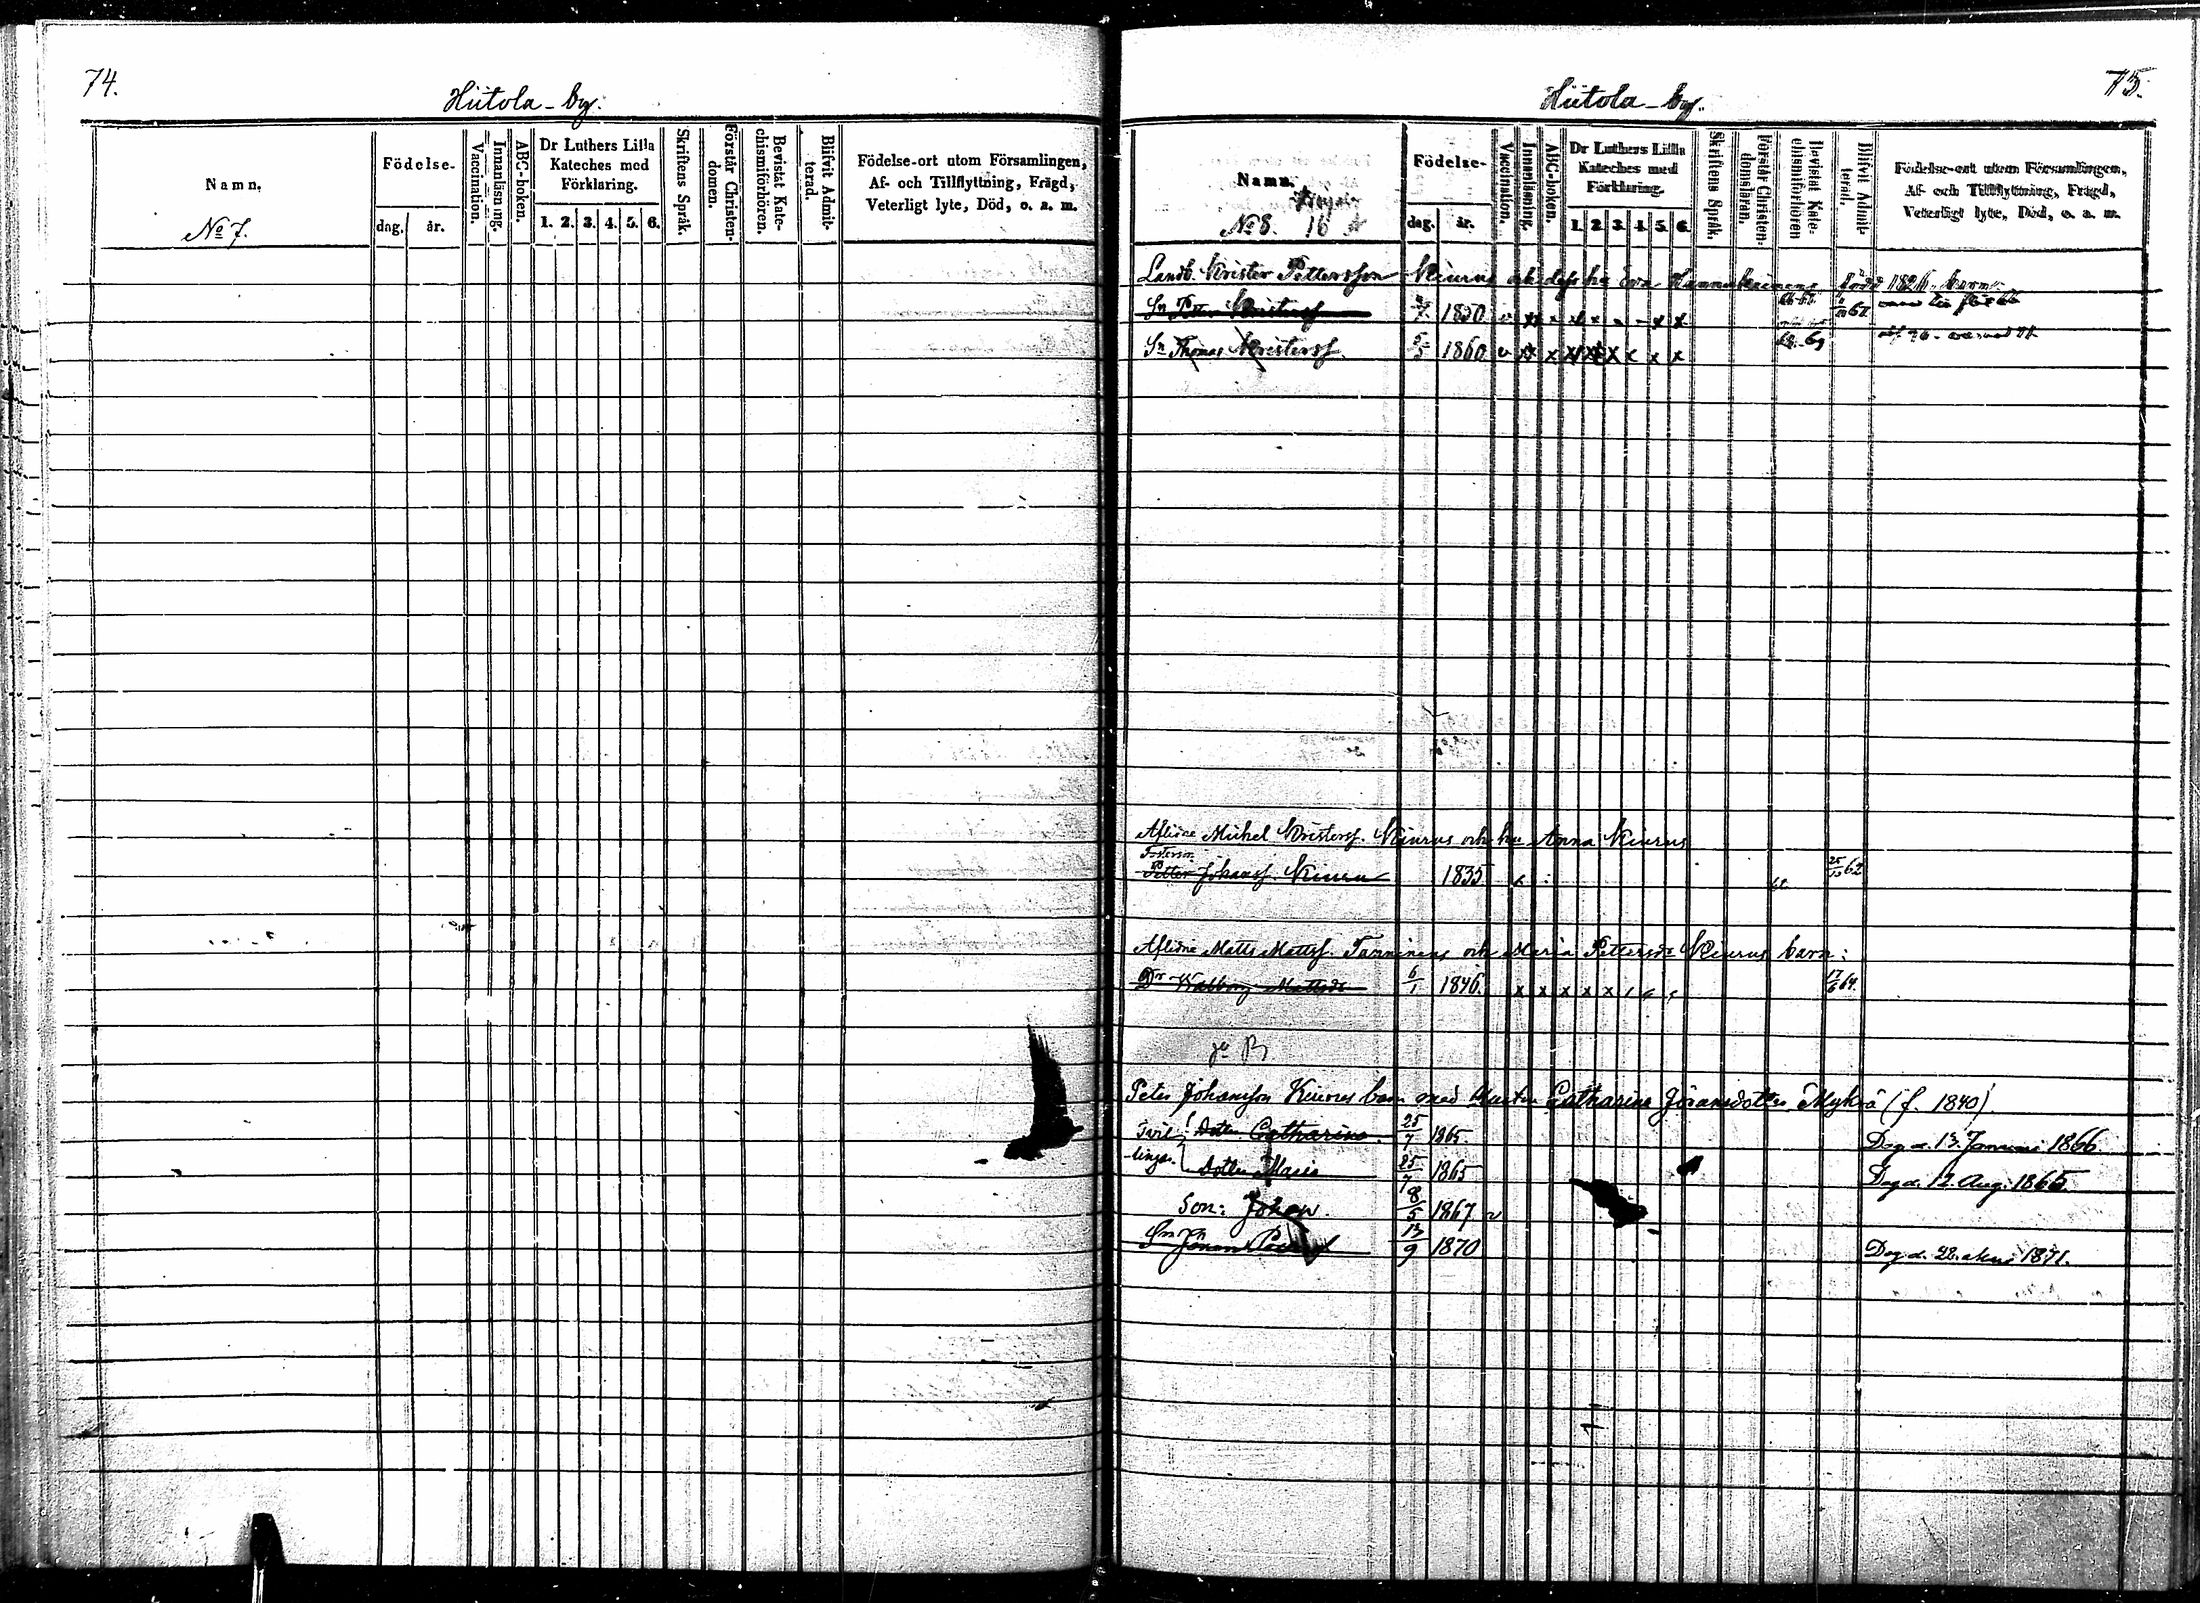 74.
Hiitola-by.
Namn.
No 7.
Födelse-
dag.
år.
Vaccination.
Innanläsning.
ABC-boken.
Dr Luthers Lilla
Kateches med
Förklaring.
1. 2. 3. 4. 5. 6.
Skriftens Språk.
Förstår Christen-
domen.
Bevistat Kate-
chismiförhören.
Blifvit Admit-
terad.
Födelse-ort utom Församlingen,
Af- och Tillflyttning, Frägd,
Veterligt lyte, Död, o. a. m.
75.
Hiitola-by.
Namn.
No 8. 16
Födelse-
dag.
år.
Vaccination.
Innanläsning.
ABC-boken.
Dr Luthers Lilla
Kateches med
Förklaring.
1. 2. 3. 4. 5. 6.
Skriftens Språk.
Förstår Christen-
domsläran.
Bevistat Kate-
chismiförhören
Blifvit Admit-
terad.
Födelse-ort utom Församlingen,
Af- och Tillflyttning, Frägd,
Veterligt lyte, Död, o. a. m.
Landb. Krister Pettersson Kiurus och dess hu Eva född 1826. barn:
Sn Peter Kristerss 1850 v x x x x x x 67
Sn Thomas Kristerss 1860 v x x x x x x x x 68-69
Aflidne Mickel Kristerss. Kiurus och hu Anna Kiurus
Fosterson
Petter Johanss. Kiuru 1835 x 25/10 62
Aflidne Matts Mattss. Tanninens och Maria Pettersdr Kiurus barn:
Dr Walborg Mattsdr 6/1 1846. x x x x x 17/6 64.
Peter Johansson Kiurus barn med hustru Catharina Jöransdotter Myhrä (f. 1840).
Tvil-
lingar. Dotter Catharina. 25/7 1865. Dog d. 13. Januari 1866.
Dotter Maria 25/7 1865 Dog d. 12. Aug. 1865.
Son: Johan. 8/5 1867 v
Sn Jöran 13/9 1870 Dog d. 28. 1871.